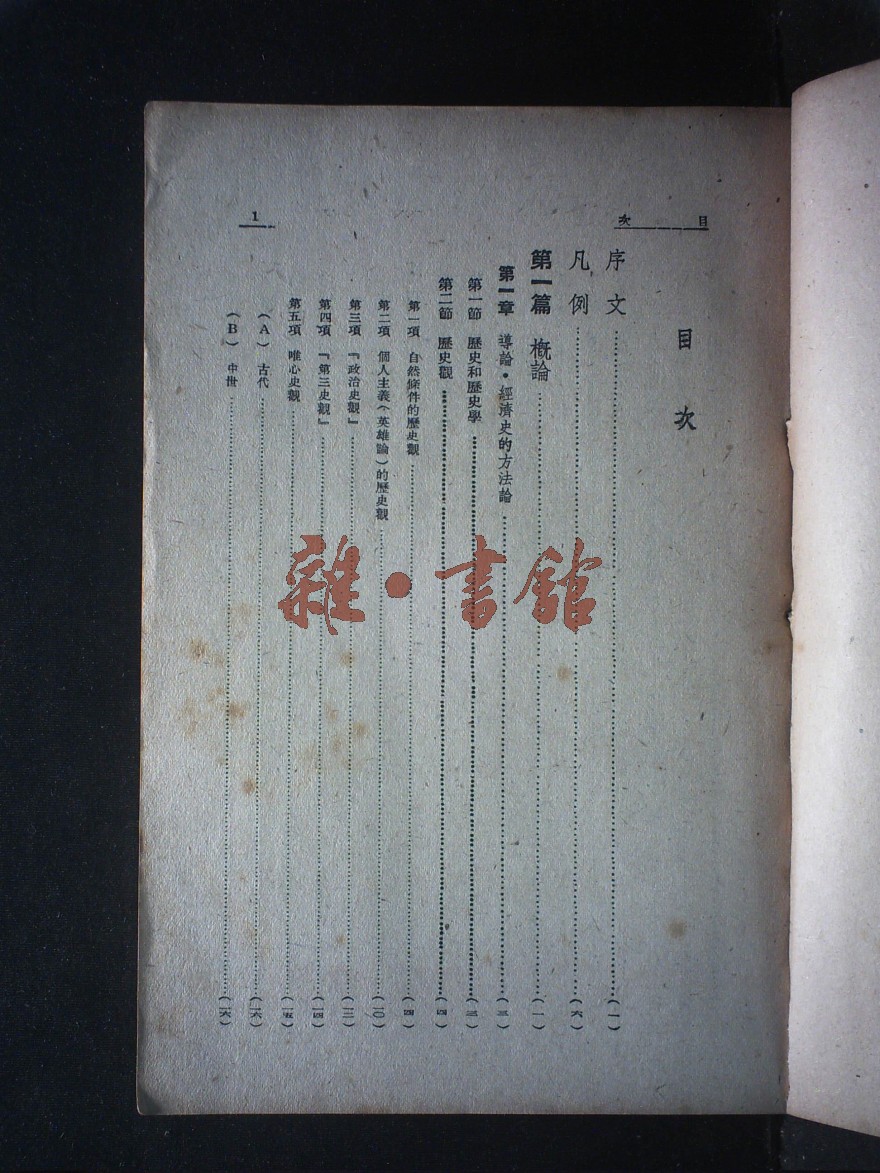 目次
1
目次
序文……(一)
凡例……(六)
第一篇 概論……(一)
第一章 導論・經濟史的方法論……(三)
第一節 歷史和歷史學……(三)
第二節 歷史觀……(四)
第一項 自然條件的歷史觀……(四)
第二項 個人主義(英雄論)的歷史觀……(一〇)
第三項 『政治史觀』……(一二)
第四項 『第三史觀』……(一四)
第五項 唯心史觀……(一五)
(A) 古代……(一六)
(B) 中世……(一六)
雜・書館